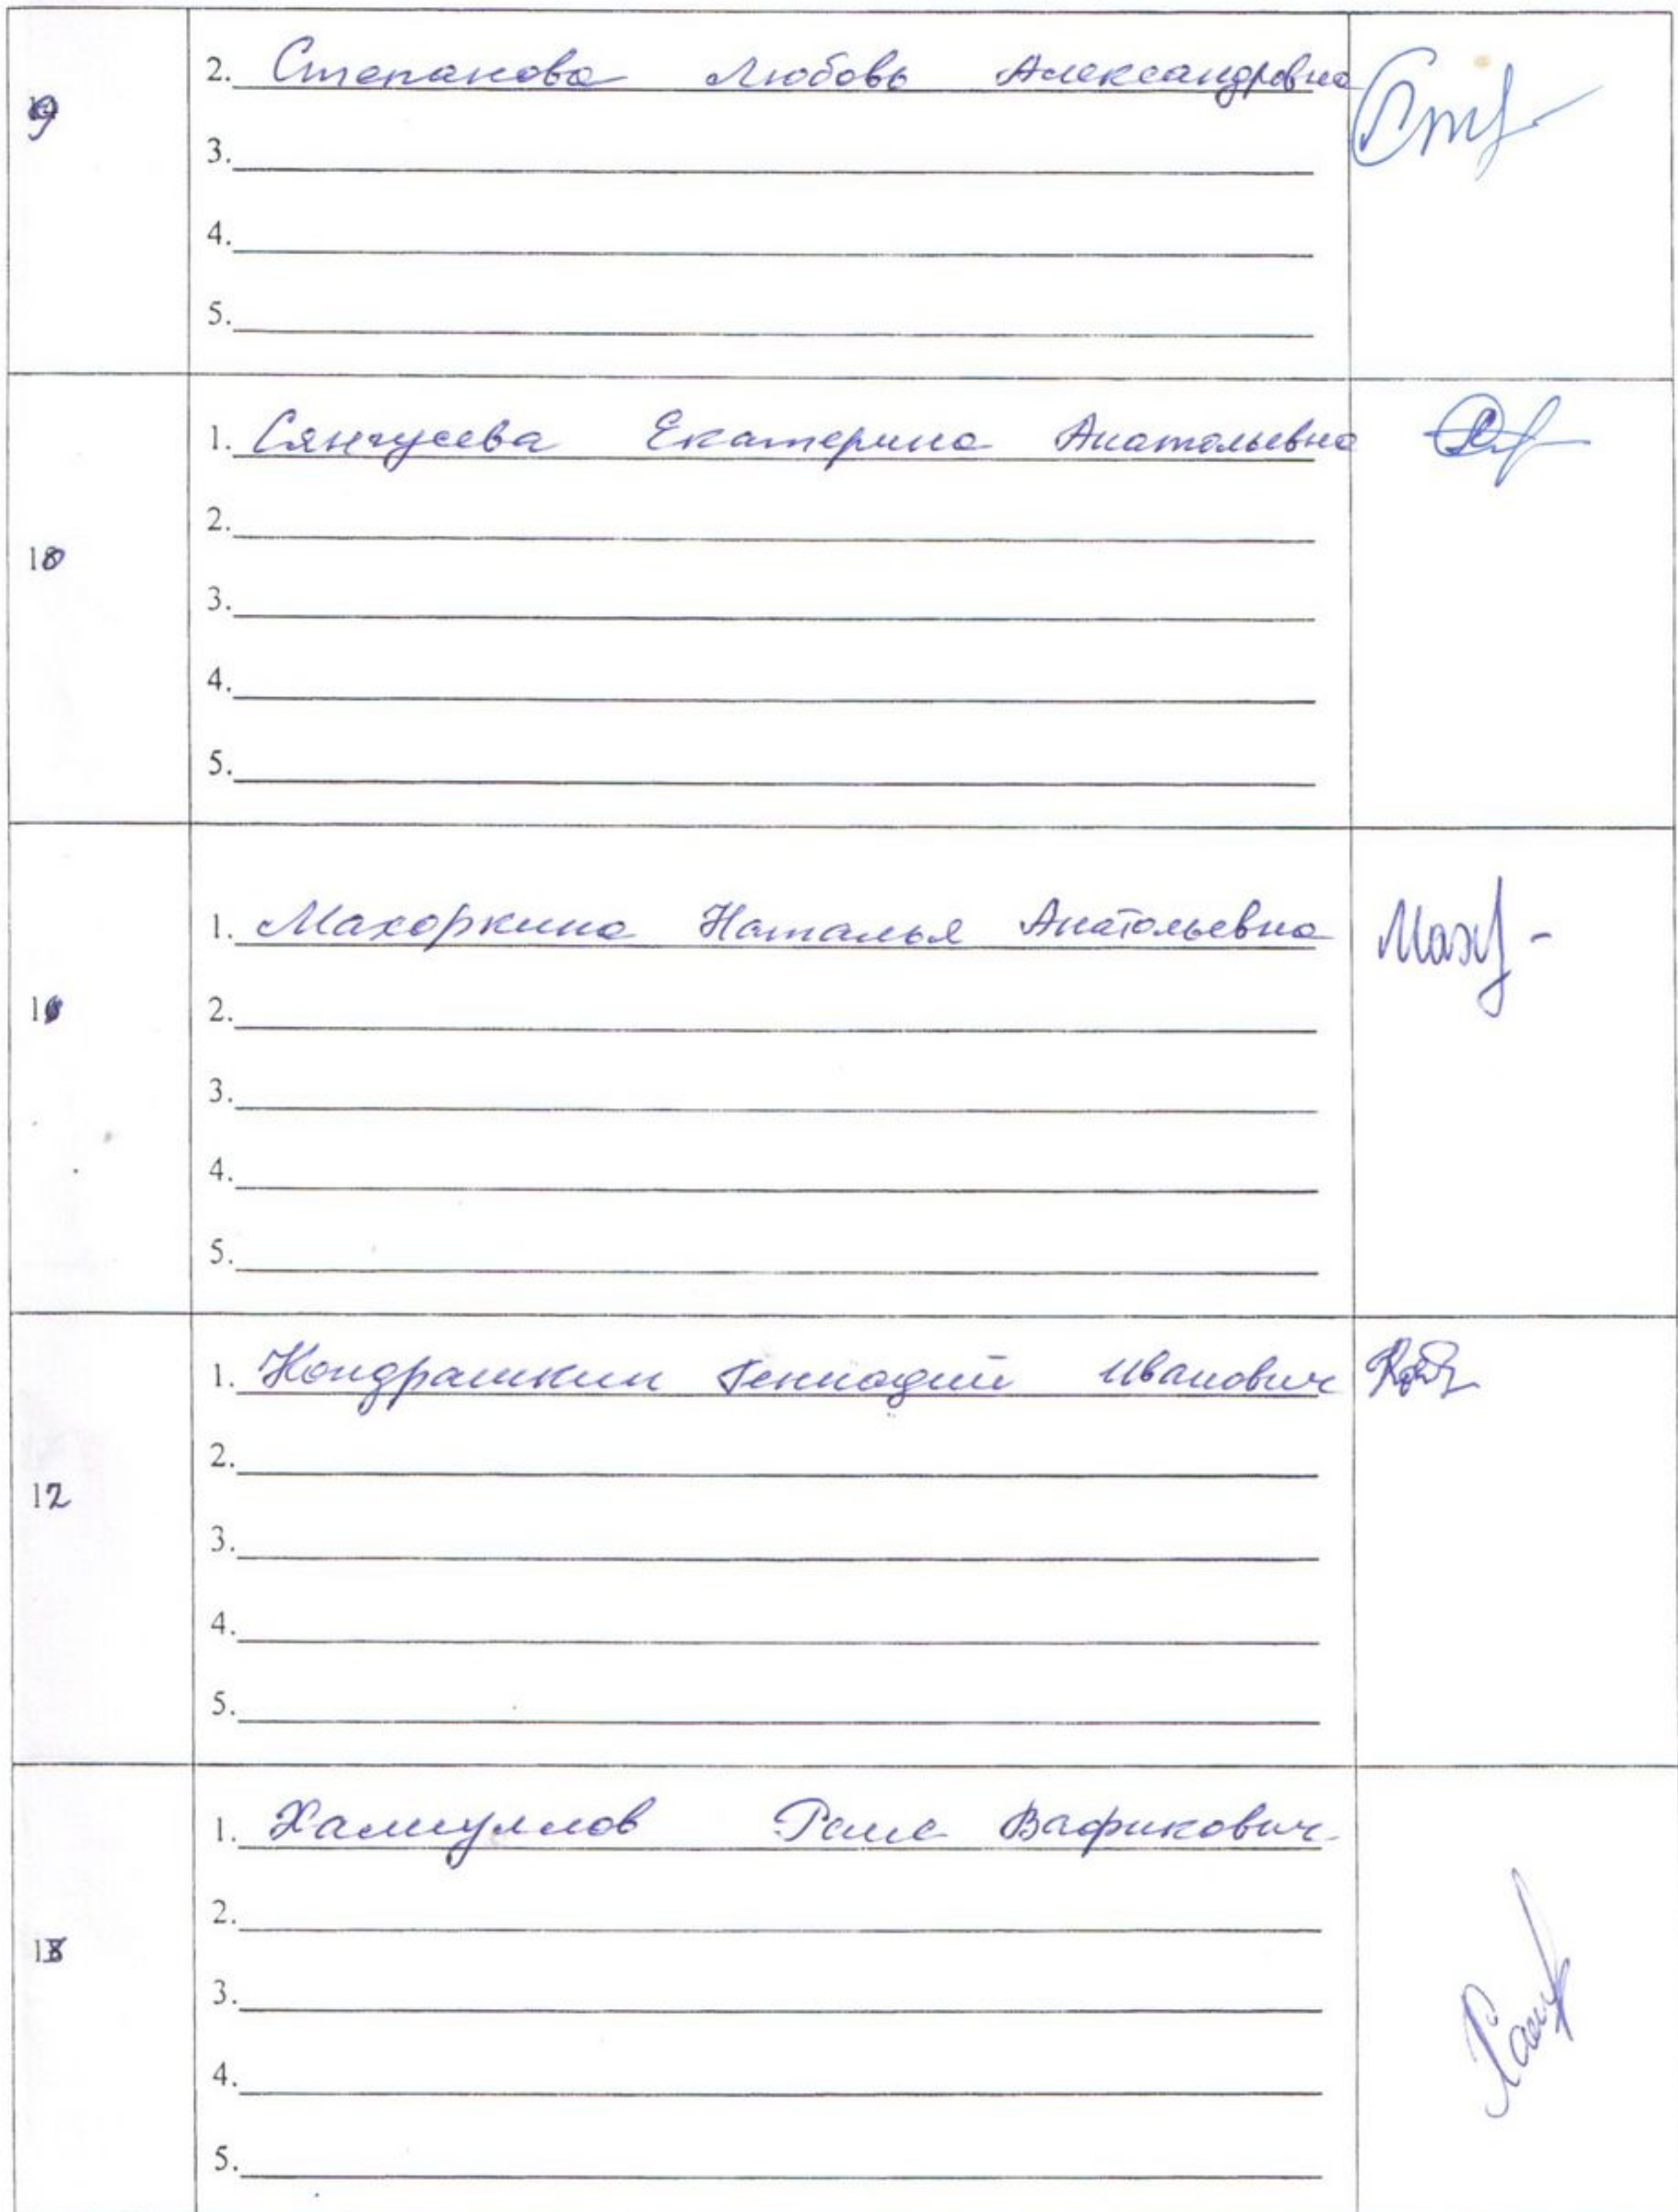 9
2. Степанова Любовь Александровна
3.
4.
5.
10
1. Сянгусева Екатерина Анатольевна
2.
3.
4.
5.
1. Махоркина Наталья Анатольевна
2.
3.
4.
5.
12
1. Кондрашкин Геннадий Иванович
2.
3.
4.
5.
13
1. Хамуллов Раис Вафикович
2.
3.
4.
5.